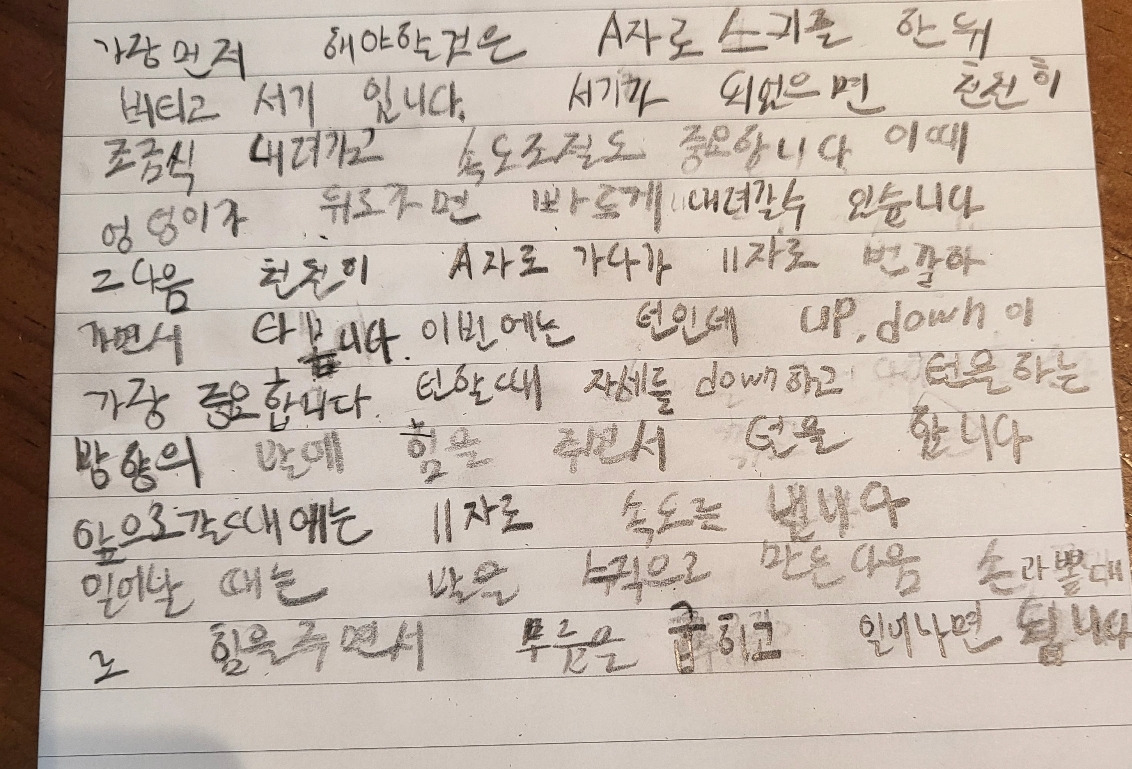 가장먼저 해야할것은 A자로 스키를 한뒤
버티고 서기 입니다. 서기가 되었으면 천천히
조금식 내려가고 속도조절도 중요합니다 이때
엉덩이가 뒤로가면 빠르게 내려갈수 있습니다
그다음 천천히 A자로 가다가 11자로 번갈아
가면서 타봅니다. 이번에는 턴인데 up, down이
가장 중요합니다. 턴할때 자세를 down하고 턴을하는
방향의 발에 힘을 주면서 턴을 합니다
앞으로갈때에는 11자로 속도를 냅니다
일어날 때는 발을 수직으로 만든다음 손과 뽈대
로 힘을주면서 무릎을 굽히고 일어나면 됩니다